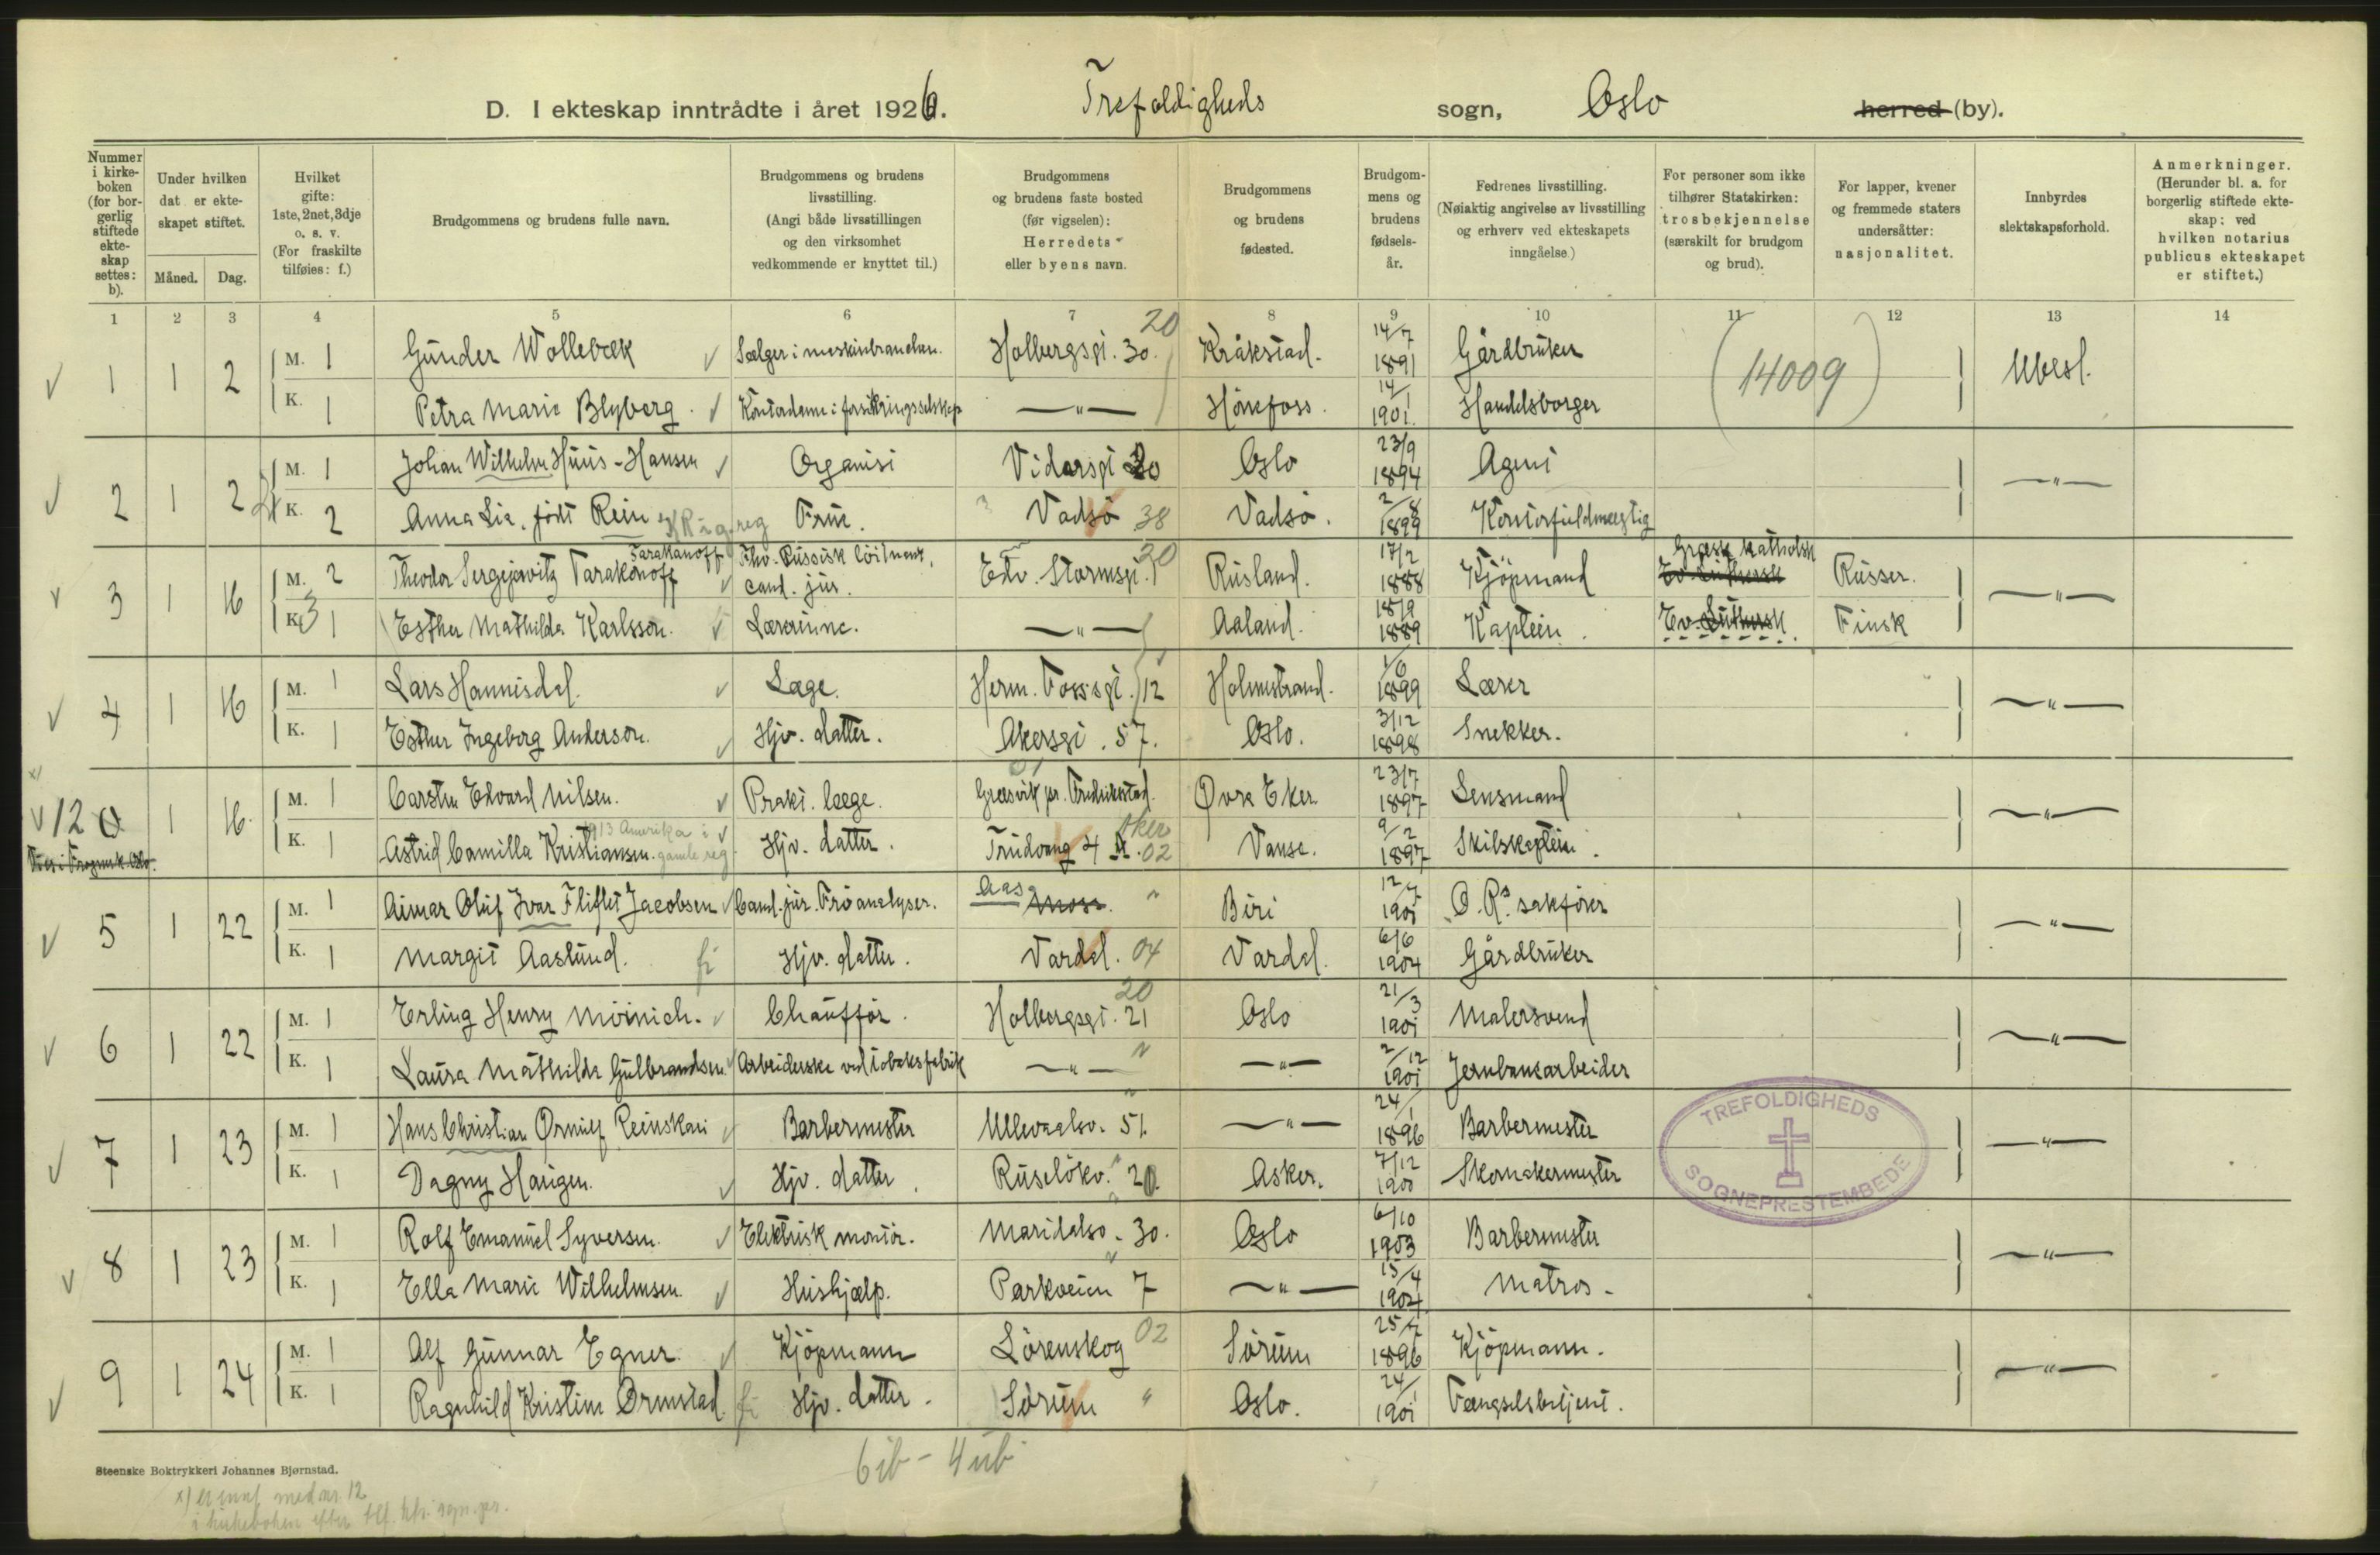 D. I ekteskap inntrådte i året 1926. Trefoldigheds sogn, Oslo herred (by).
Nummer i kirkeboken (for borgerlig stiftede ekteskap settes: b).
Under hvilken dat er ekteskapet stiftet.
Måned. Dag.
Hvilket gifte: 1ste, 2net, 3dje o. s. v. (For fraskilte tilføies: f.)
Brudgommens og brudens fulle navn.
Brudgommens og brudens livsstilling. (Angi både livsstillingen og den virksomhet vedkommende er knyttet til.)
Brudgommens og brudens faste bosted (før vigselen): Herredets eller byens navn.
Brudgommens og brudens fødested.
Brudgommens og brudens fødselsår.
Fedrenes livsstilling. (Nøiaktig angivelse av livsstilling og erhverv ved ekteskapets inngåelse.)
For personer som ikke tilhører Statskirken: trosbekjennelse (særskilt for brudgom og brud).
For lapper, kvener og fremmede staters undersåtter: nasjonalitet.
Innbyrdes slektskapsforhold.
Anmerkninger. (Herunder bl. a. for borgerlig stiftede ekteskap: ved hvilken notarius publicus ekteskapet er stiftet.)
1 2 3 4 5 6 7 8 9 10 11 12 13 14
1 1 2 M. 1 Gunder Wollebæk Sælger i maskinbranchen. Holbergsgt. 30. 20 Kråkstad. 14/7 1891 Gårdbruker (14009) Ubesl.
K. 1 Petra Marie Blyberg. Kontordame i forsikringsselskap —"— Hönefoss. 14/1 1901. Handelsborger
2 1 2 M. 1 Johan Wilhelm Huus-Hansen Organist Vidarsgt 20 Oslo 23/9 1894 Agent —"—
K. 2 Anna Lia, födt Rein Frue. Vadsö 38 Vadsö. 2/8 1899 Kontorfuldmægtig
3 1 16 M. 2 Theodor Sergejewitz Tarakanoff Tarakanoff Fhv. Russisk löitnant, cand. jur. Edv. Stormsgt. 1 20 Rusland. 17/2 1888 Kjöpmand Græsk katholsk Ev. Luthersk Russer. —"—
K. 1 Esther Mathilda Karlsson. Lærerinne. —"— Aaland. 18/9 1889 Kaptein. Ev. Luthersk Finsk
4 1 16 M. 1 Lars Hannisdal. Læge. Herm. Fossgt. 12 Holmestrand. 1/6 1899 Lærer —"—
K. 1 Esther Ingeborg Anderson. Hjv. datter. Akersgt. 57. Oslo. 3/12 1898 Snekker.
12 1 16 M. 1 Carsten Edvard Nilsen. Prakt. læge. Gressvik pr. Fredrikstad. 01 Øvre Eker. 23/7 1897 Lensmand —"—
K. 1 Astrid Camilla Kristiansen. 1913 Amerika i gamle reg Hjv. datter. Trudvang 4 Aker 02 Vanse. 9/2 1897 Skibskaptein.
5 1 22 M. 1 Aimar Oluf Ivar Fliflet Jacobsen Cand. jur. Fröanalyser. Aas Moss. " Biri 12/7 1901 O. Rs. sakförer —"—
K. 1 Margit Aaslund. Hjv. datter. Vardal. 04 Vardal. 6/6 1904 Gårdbruker
6 1 22 M. 1 Erling Henry Möinich. Chaufför. Holbergsgt. 21 20 Oslo 21/3 1901 Malersvend —"—
K. 1 Laura Mathilde Gulbrandsen. Arbeiderske ved tobaksfabrik —"— —"— 2/12 1901 Jernbanearbeider
7 1 23 M. 1 Hans Christian Ørnulf Reinskau Barbermester Ullevaalsv. 51. —"— 24/1 1896 Barbermester —"—
K. 1 Dagny Haugen. Hjv. datter. Ruselökv. 20. Asker. 7/12 1900 Skomakermester
TREFOLDIGHEDS SOGNEPRESTEMBEDE
8 1 23 M. 1 Rolf Emanuel Syversen. Elektrisk montör. Maridalsv. 30. Oslo 6/10 1903 Barbermester —"—
K. 1 Ella Marie Wilhelmsen. Hushjælp. Parkveien 7 —"— 15/4 1904 Matros.
9 1 24 M. 1 Alf Gunnar Egner. Kjöpmann Lörenskog 02 Sörum 25/7 1896 Kjöpmann. —"—
K. 1 Ragnhild Kristine Ormstad. Hjv. datter. Sörum " Oslo. 24/1 1901 Fængselsbetjent.
6 ib - 4 ub
Steenske Boktrykkeri Johannes Bjørnstad.
x) er innf med nr. 12
i kirkeboken efter tlf.